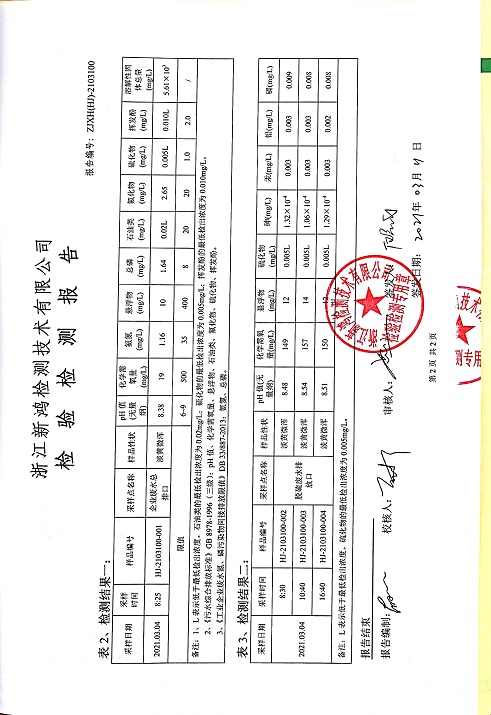 浙江新鸿检测技术有限公司
检 验 检 测 报 告
报告编号：ZJXH(HJ)-2103100
表 2、检测结果一：
采样日期 采样时间 样品编号 采样点名称 样品性状 pH 值(无量纲) 化学需氧量(mg/L) 氨氮(mg/L) 悬浮物(mg/L) 总磷(mg/L) 石油类(mg/L) 氟化物(mg/L) 硫化物(mg/L) 挥发酚(mg/L) 溶解性固体总量(mg/L)
2021.03.04 8:25 HJ-2103100-001 企业废水总排口 淡黄微浑 8.38 19 1.16 10 1.64 0.02L 2.65 0.005L 0.010L 5.61×10³
限值 6-9 500 35 400 8 20 20 1.0 2.0 /
备注：1、L 表示低于最低检出浓度。石油类的最低检出浓度为 0.02mg/L；硫化物的最低检出浓度为 0.005mg/L；挥发酚的最低检出浓度为 0.010mg/L。
2、《污水综合排放标准》GB 8978-1996（三级）：pH 值、化学需氧量、悬浮物、石油类、氟化物、硫化物、挥发酚。
3、《工业企业废水氮、磷污染物间接排放限值》DB 33/887-2013：氨氮、总磷。
表 3、检测结果二：
采样日期 采样时间 样品编号 采样点名称 样品性状 pH 值(无量纲) 化学需氧量(mg/L) 悬浮物(mg/L) 硫化物(mg/L) 砷(mg/L) 汞(mg/L) 铅(mg/L) 镉(mg/L)
2021.03.04 8:30 HJ-2103100-002 脱硫废水排放口 淡黄微浑 8.48 149 12 0.005L 1.32×10⁻⁴ 0.003 0.003 0.009
10:40 HJ-2103100-003 淡黄微浑 8.54 157 14 0.005L 1.06×10⁻⁴ 0.003 0.003 0.008
16:40 HJ-2103100-004 淡黄微浑 8.51 150 0.005L 1.29×10⁻⁴ 0.003 0.002 0.008
备注：L 表示低于最低检出浓度。硫化物的最低检出浓度为 0.005mg/L。
报告结束
报告编制： 校核人： 审核人： 签发
签发日期：2021年03月4日
检验检测专用章
第 2 页 共 2 页